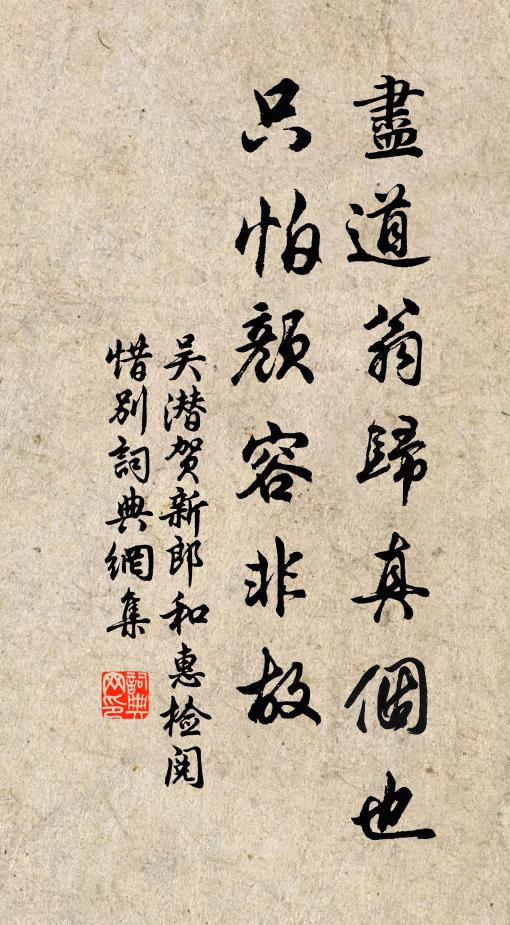 盡道翁歸真個也
只怕顏容非故
吴潜贺新郎和惠檢閱
惜别詞典網集
詞典
网印